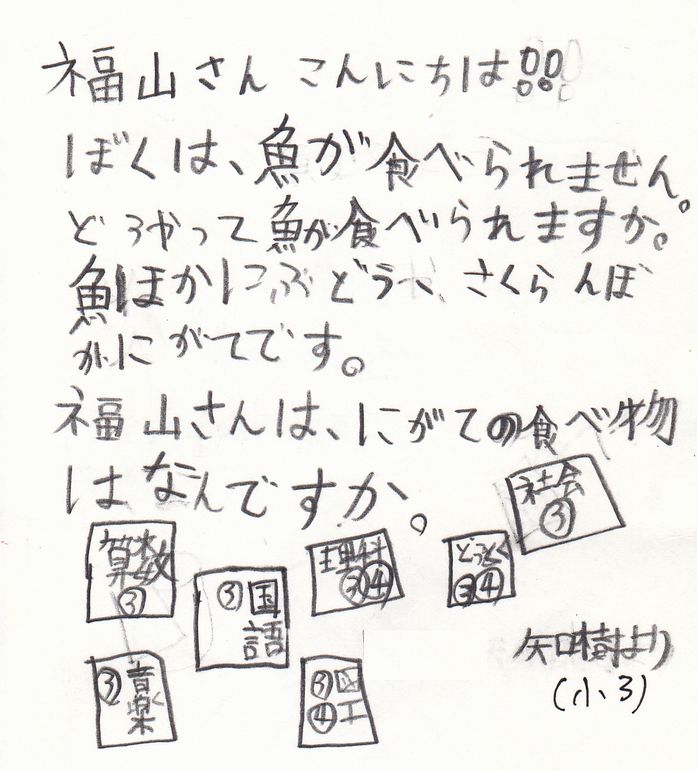 福山さん こんにちは!!
ぼくは、魚が食べられません。
どうやって魚が食べられますか。
魚ほかにぶどう、さくらんぼ
がにがてです。
福山さんは、にがての食べ物
はなんですか。
社会
③
算数
③
③国語
理科
③④
どうとく
③④
③音楽
③④図工
矢口樹より
(小3)